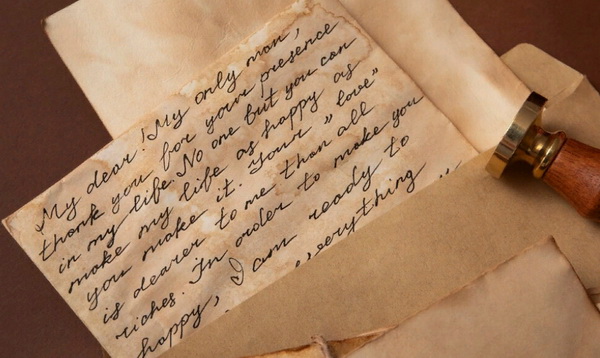 My dear! My only man,
thank you for your presence
in my life. No one but you can
make my life as happy as
you make it. Your „love”
is dearer to me than all
riches. In order to make you
happy, I am ready to
everything